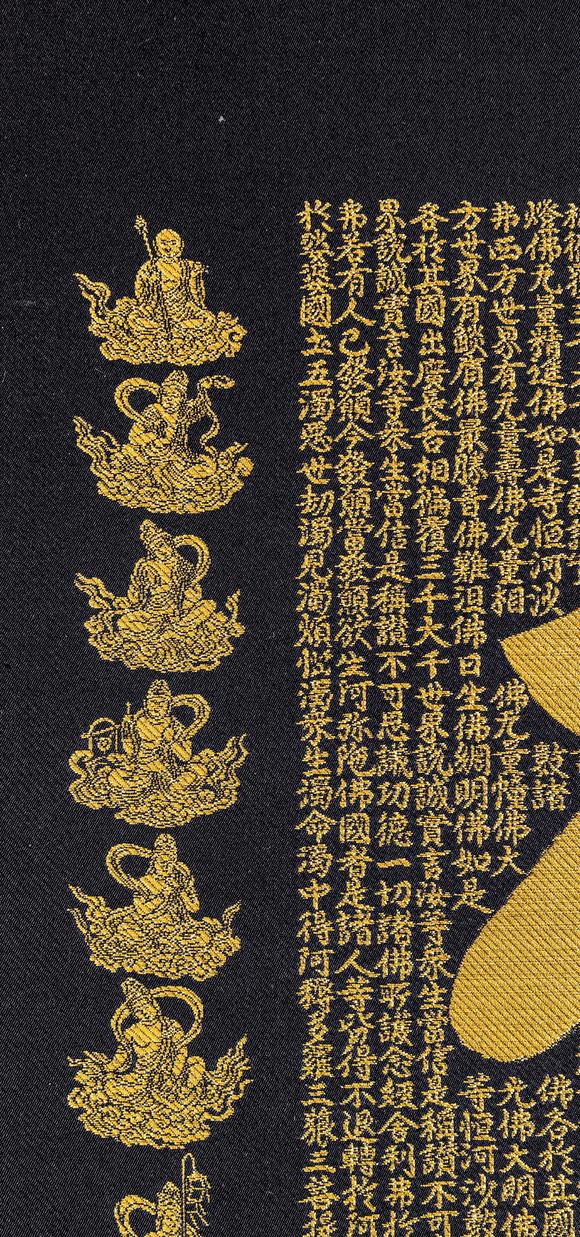 燈佛无量精進佛如是等恒河沙數諸佛各於其國
弗西方世界有无量壽佛无量相佛无量幢佛大光佛大明佛
方世界有燄肩佛最勝音佛難沮佛日生佛網明佛如是等恒河沙數
各於其國出廣長舌相徧覆三千大千世界說誠實言汝等衆生當信是稱讚不可
界說誠實言汝等衆生當信是稱讚不可思議功德一切諸佛所護念經舍利弗於
弗若有人已發願今發願當發願欲生阿弥陁佛國者是諸人等皆得不退轉於阿
於娑婆國土五濁惡世劫濁見濁煩惱濁衆生濁命濁中得阿耨多羅三藐三菩提